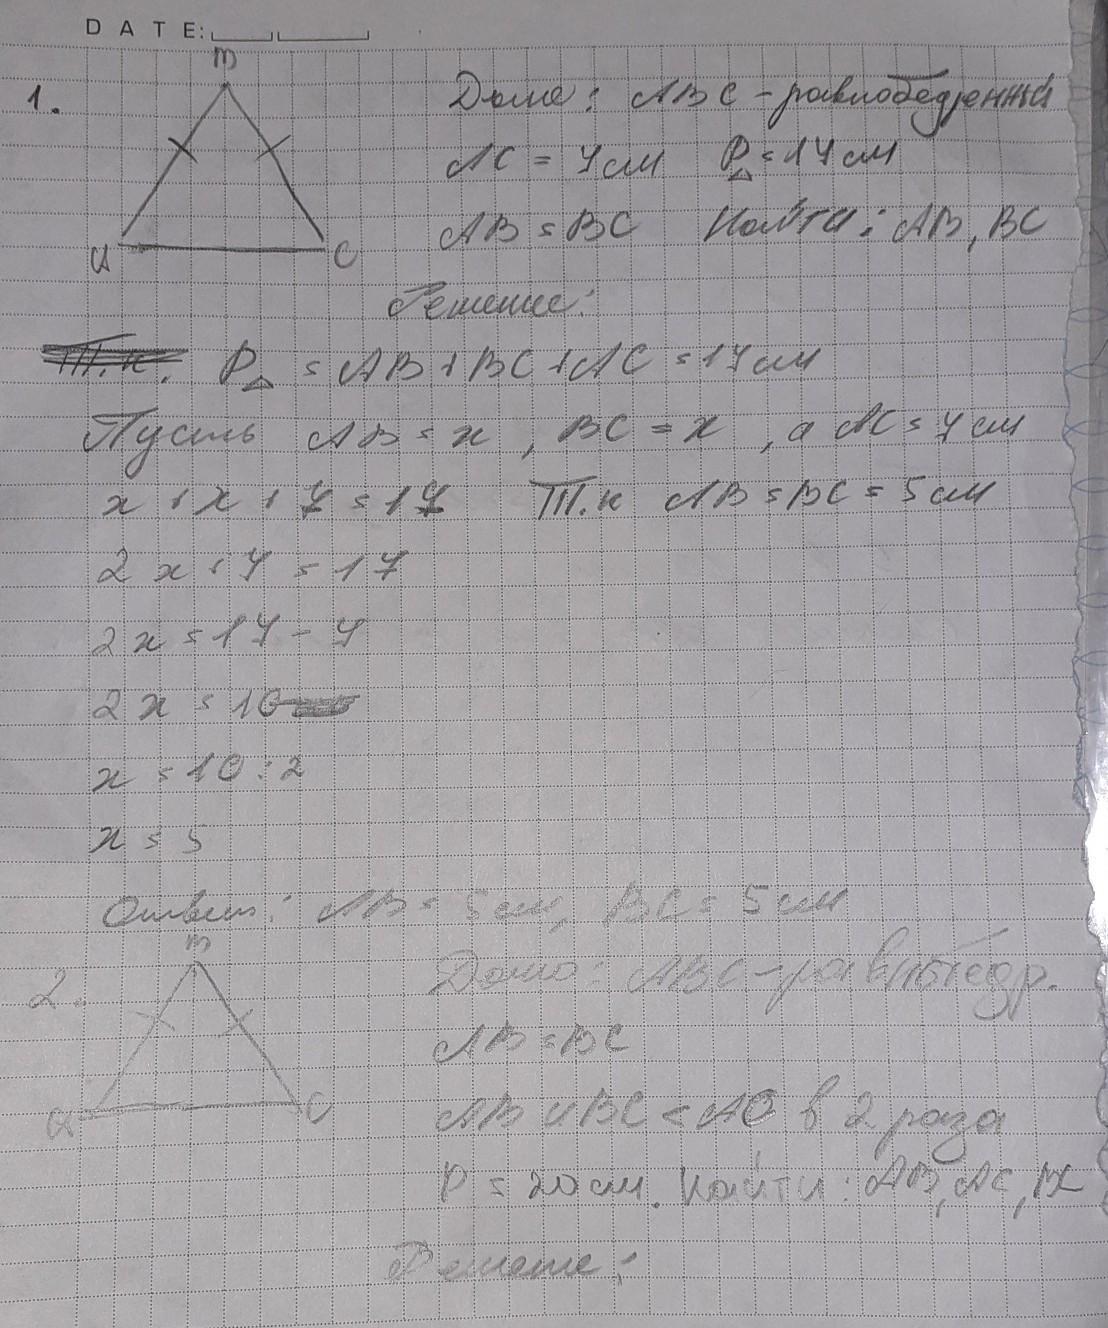 DATE:
B
1.
Дано: ABC - равнобедренный
AC = 7 см P△ = 17 см
AB = BC Найти: AB, BC
A C
Решение:
P△ = AB + BC + AC = 17 см
Пусть AB = x, BC = x, а AC = 7 см
x + x + 7 = 17 Т.к AB = BC = 5 см
2x + 7 = 17
2x = 17 - 7
2x = 10
x = 10 : 2
x = 5
Ответ: AB = 5 см, BC = 5 см
B
2.
Дано: ABC - равнобедр.
AB = BC
AB и BC < AC в 2 раза
A C
P = 20 см. Найти: AB, AC, BC
Решение: